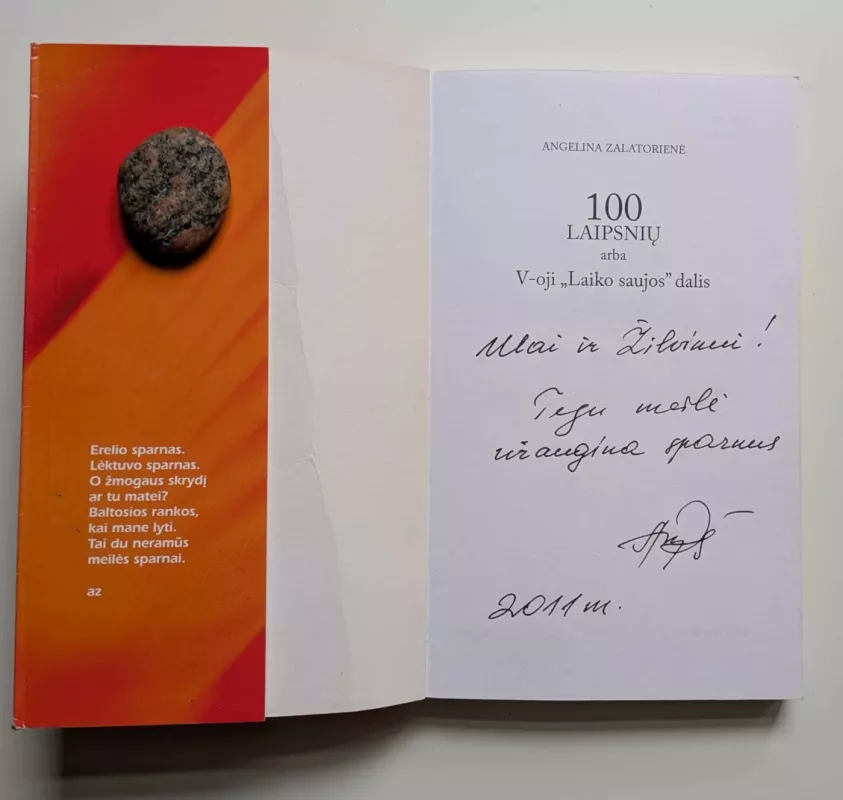 Erelio sparnas.
Lėktuvo sparnas.
O žmogaus skrydį
ar tu matei?
Baltosios rankos,
kai mane lyti.
Tai du neramūs
meilės sparnai.
az
ANGELINA ZALATORIENĖ
100
LAIPSNIŲ
arba
V-oji „Laiko saujos” dalis
ir Žilvinui!
Tegu meilė
užaugina sparnus
2011 m.